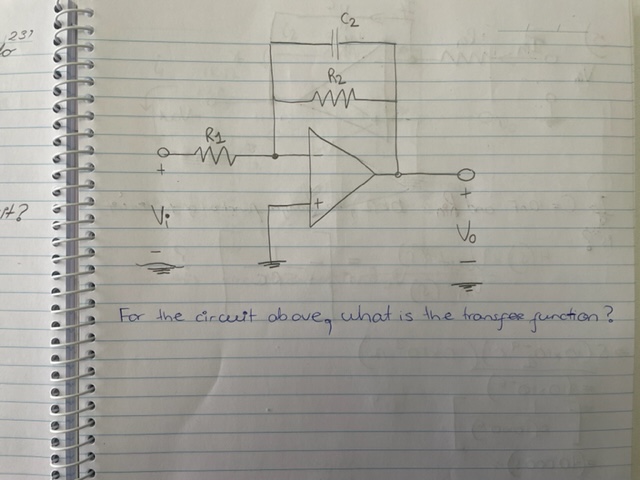 231
st?
C2
R2
R1
−
+
+
Vi
-
+
Vo
-
For the circuit above, what is the transfer function?